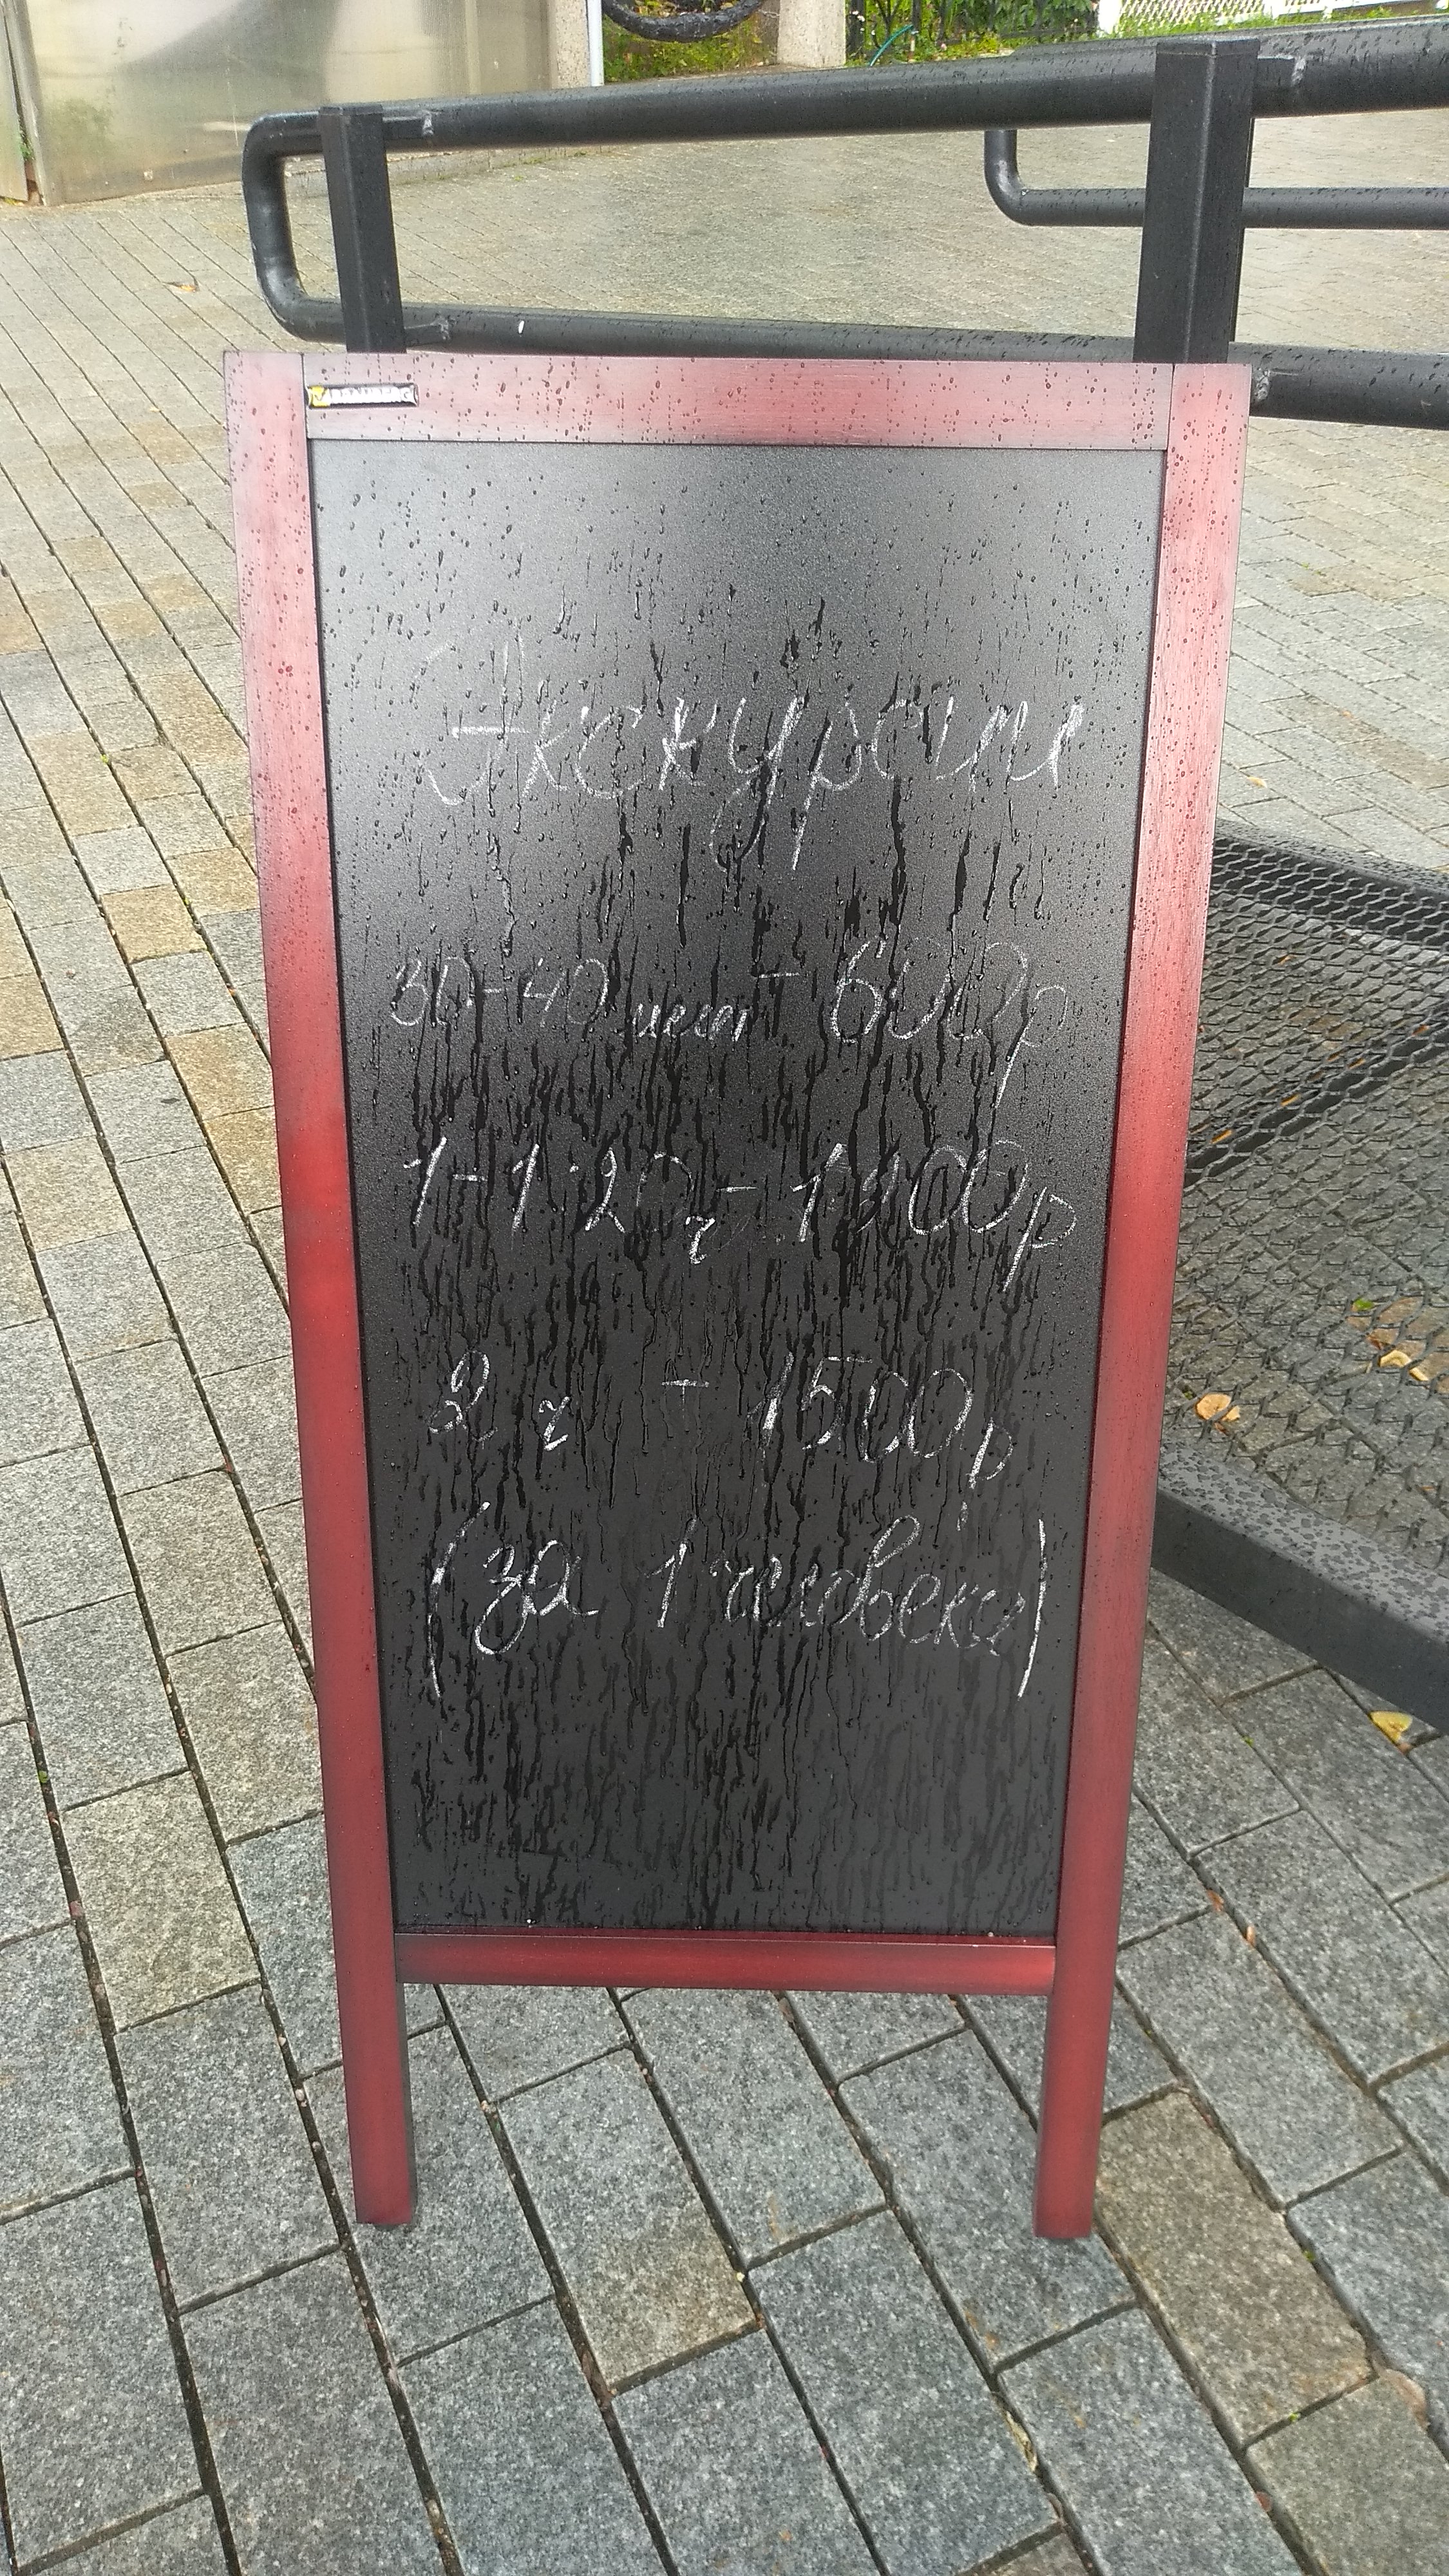 Экскурсии
30-40 мин - 600р
1-1:20 ч - 1200р
2 ч - 1500р
(за 1 человека)